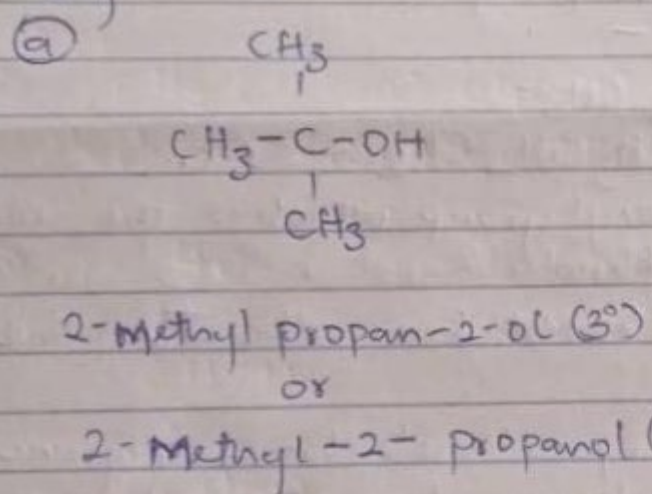 (a)
CH3
CH3-C-OH
CH3
2-Methyl propan-2-ol (3°)
or
2-Methyl-2- propanol (